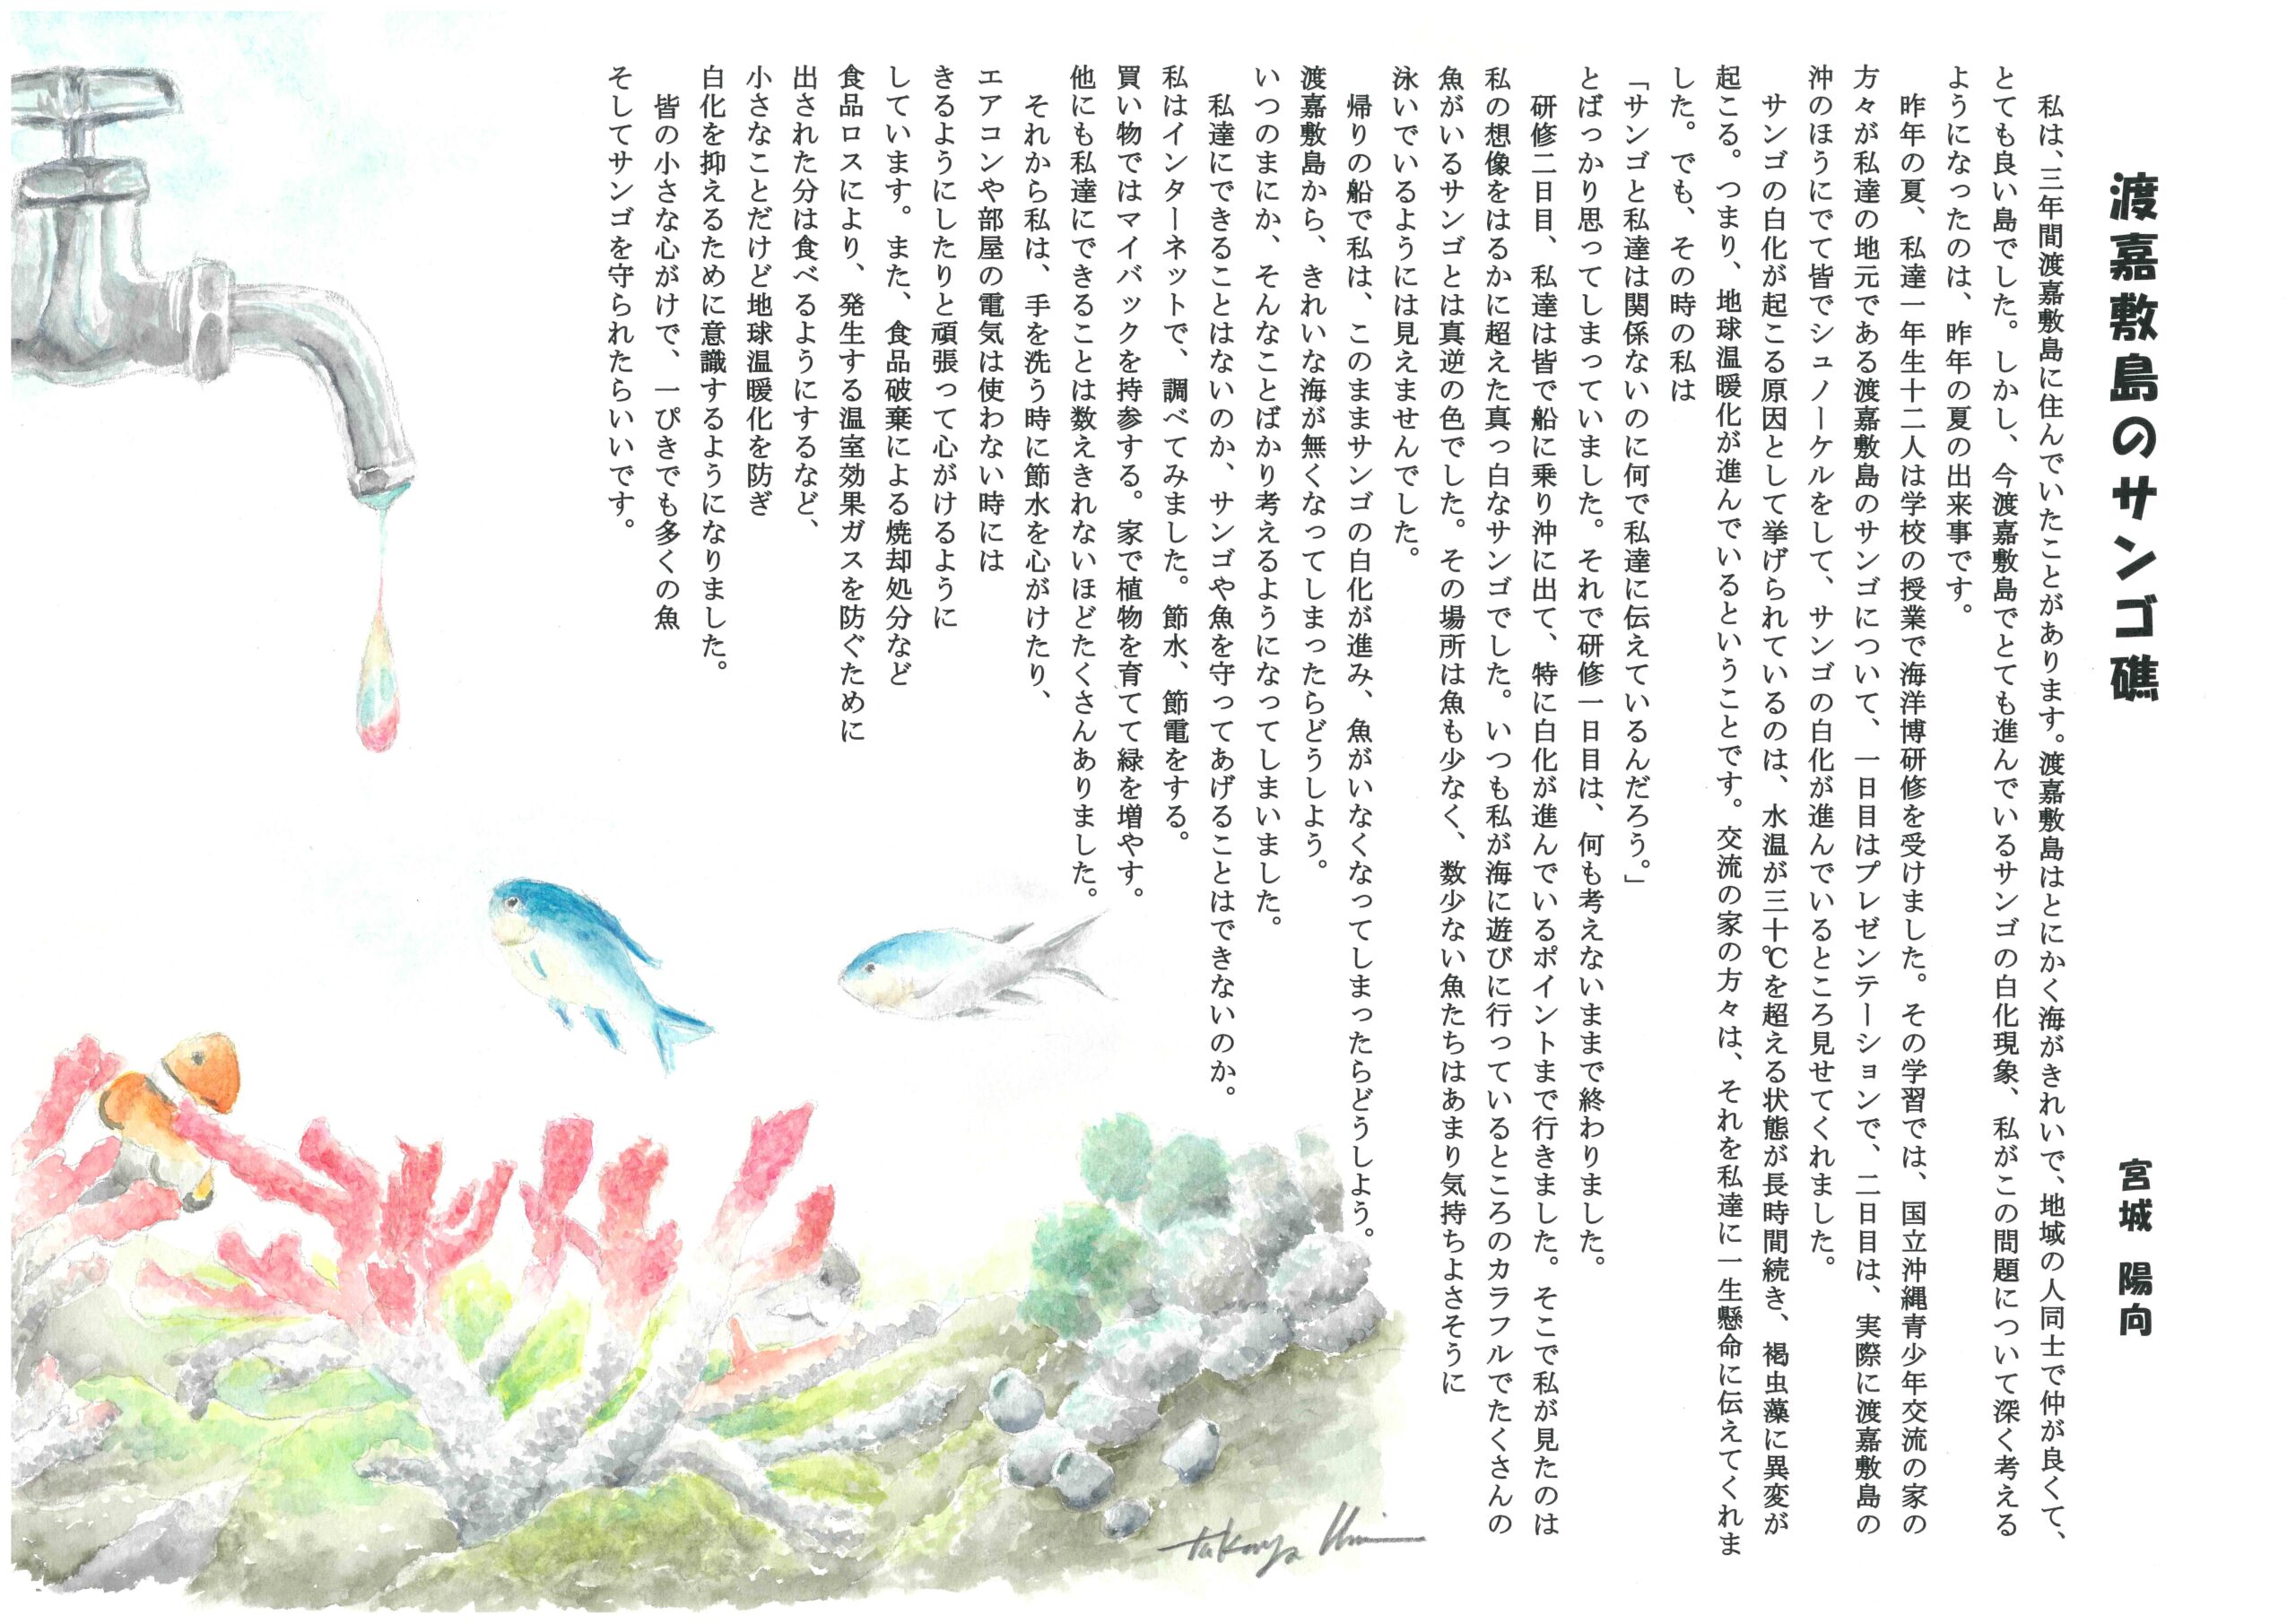 渡嘉敷島のサンゴ礁
宮城 陽向
私は、三年間渡嘉敷島に住んでいたことがあります。渡嘉敷島はとにかく海がきれいで、地域の人同士で仲が良くて、
とても良い島でした。しかし、今渡嘉敷島でとても進んでいるサンゴの白化現象、私がこの問題について深く考える
ようになったのは、昨年の夏の出来事です。
昨年の夏、私達一年生十二人は学校の授業で海洋博研修を受けました。その学習では、国立沖縄青少年交流の家の
方々が私達の地元である渡嘉敷島のサンゴについて、一日目はプレゼンテーションで、二日目は、実際に渡嘉敷島の
沖のほうにでて皆でシュノーケルをして、サンゴの白化が進んでいるところ見せてくれました。
サンゴの白化が起こる原因として挙げられているのは、水温が三十℃を超える状態が長時間続き、褐虫藻に異変が
起こる。つまり、地球温暖化が進んでいるということです。交流の家の方々は、それを私達に一生懸命に伝えてくれま
した。でも、その時の私は
「サンゴと私達は関係ないのに何で私達に伝えているんだろう。」
とばっかり思ってしまっていました。それで研修一日目は、何も考えないままで終わりました。
研修二日目、私達は皆で船に乗り沖に出て、特に白化が進んでいるポイントまで行きました。そこで私が見たのは
私の想像をはるかに超えた真っ白なサンゴでした。いつも私が海に遊びに行っているところのカラフルでたくさんの
魚がいるサンゴとは真逆の色でした。その場所は魚も少なく、数少ない魚たちはあまり気持ちよさそうに
泳いでいるようには見えませんでした。
帰りの船で私は、このままサンゴの白化が進み、魚がいなくなってしまったらどうしよう。
渡嘉敷島から、きれいな海が無くなってしまったらどうしよう。
いつのまにか、そんなことばかり考えるようになってしまいました。
私達にできることはないのか、サンゴや魚を守ってあげることはできないのか。
私はインターネットで、調べてみました。節水、節電をする。
買い物ではマイバックを持参する。家で植物を育てて緑を増やす。
他にも私達にできることは数えきれないほどたくさんありました。
それから私は、手を洗う時に節水を心がけたり、
エアコンや部屋の電気は使わない時には
きるようにしたりと頑張って心がけるように
しています。また、食品破棄による焼却処分など
食品ロスにより、発生する温室効果ガスを防ぐために
出された分は食べるようにするなど、
小さなことだけど地球温暖化を防ぎ
白化を抑えるために意識するようになりました。
皆の小さな心がけで、一ぴきでも多くの魚
そしてサンゴを守られたらいいです。